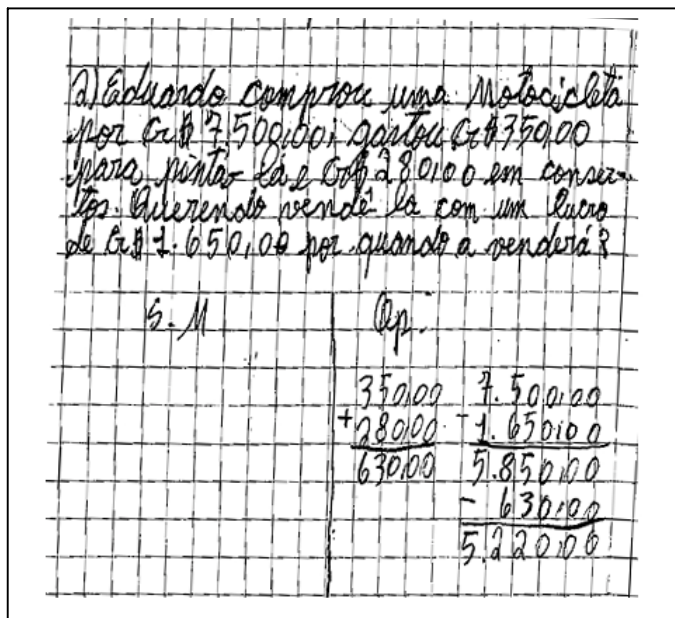 2) Eduardo comprou uma Motocicleta
por Cr$ 7.500,00; gastou Cr$ 350,00
para pintá-la e Cr$ 280,00 em conser-
tos. Querendo vendê-la com um lucro
de Cr$ 1.650,00 por quando a venderá?
S.M
Op:
350,00 7.500,00
+ 280,00 - 1.650,00
630,00 5.850,00
- 630,00
5.220,00